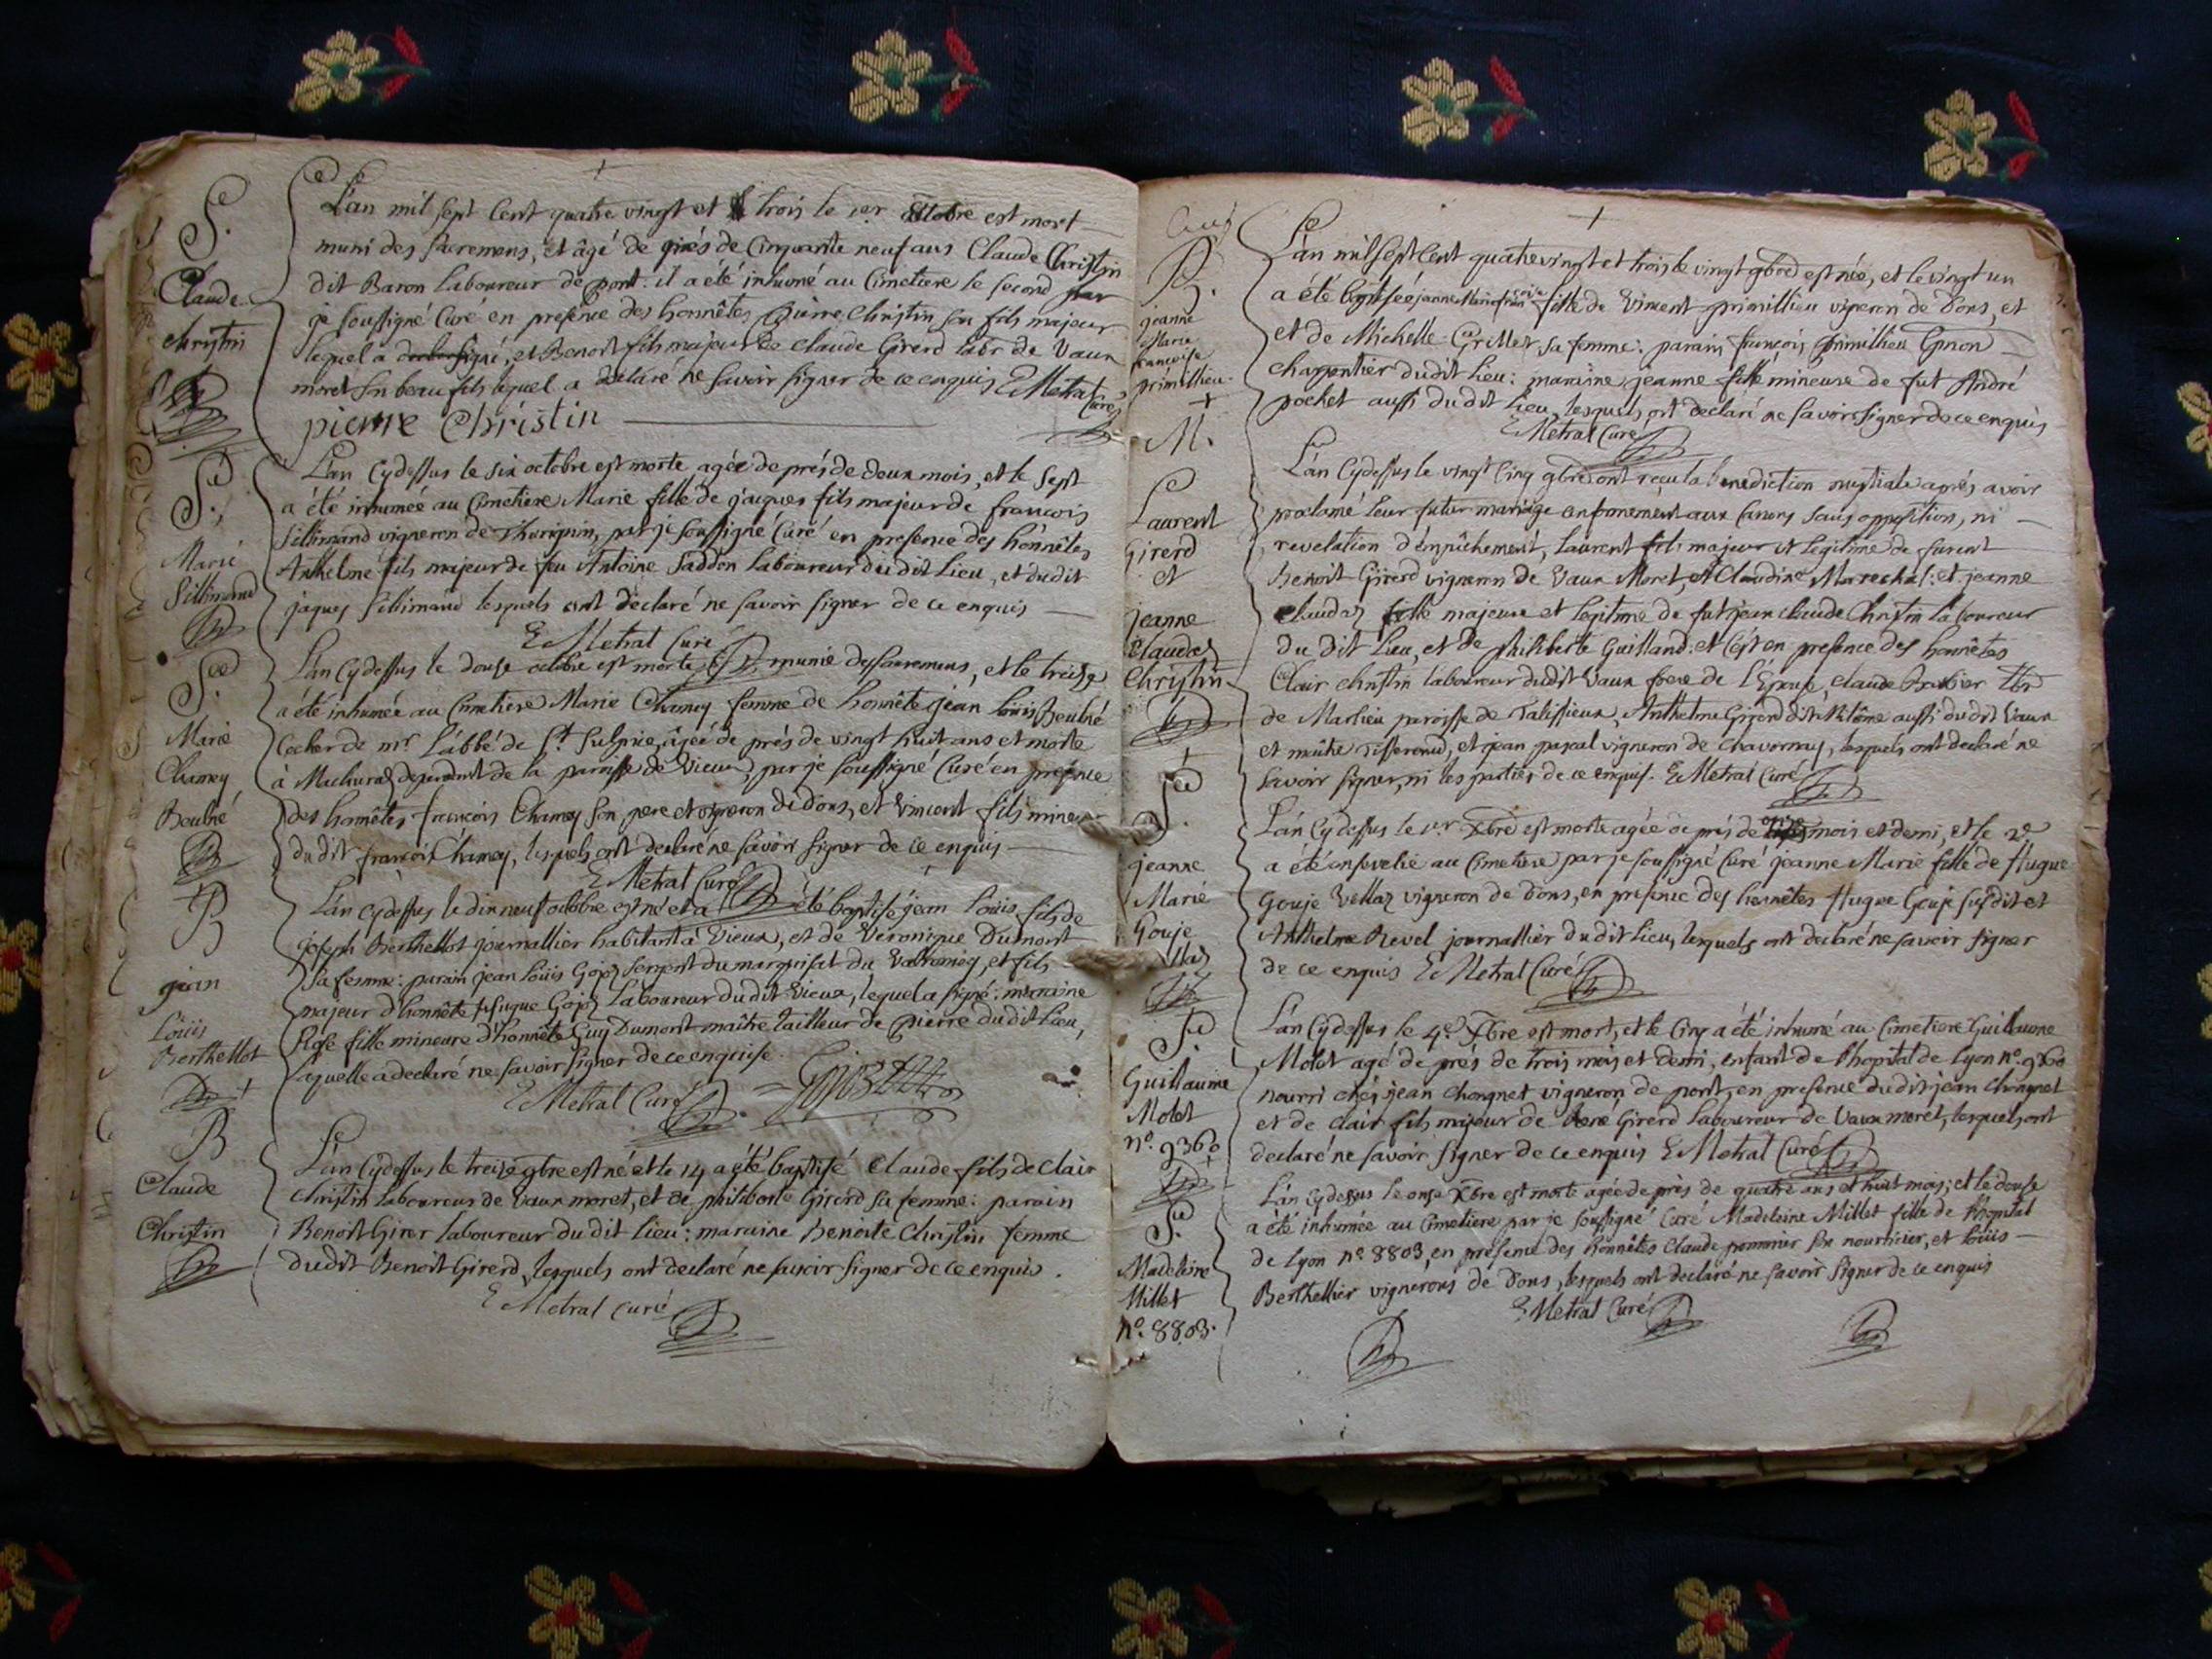 S.
Claude
christin
L'an mil sept cent quatre vingt et trois le 1er octobre est mort
muni des sacremens, et âgé de près de cinquante neuf ans Claude Christin
dit Baron laboureur de pont: il a été inhumé au cimetiere le second par
je soussigné Curé en presence des honnêtes pierre christin son fils majeur
lequel a signé, et Benoit fils majeur de claude Girerd labr de Vaux
moret son beau fils lequel a declaré ne savoir signer de ce enquis EMetral
Curé
pierre Christin
S.
Marie
Sillimand
L'an cydessus le six octobre est morte agée de près de deux mois, et le sept
a été inhumée au cimetiere Marie fille de jacques fils majeur de francois
Sillimand vigneron de Thurignin, par je soussigné Curé en presence des honnêtes
Anthelme fils majeur de feu Antoine Saddon laboureur du dit lieu, et dudit
jaques Sillimand lesquels ont declaré ne savoir signer de ce enquis
EMetral Curé
S.
Marie
Chamey
Beubné
L'an cydessus le douse octobre est morte munie des sacremens, et le treize
a été inhumée au cimetiere Marie Chamey femme de honnête jean louis Beubné
Cocher de mr l'abbé de St Sulpice, âgée de près de vingt huit ans et morte
à Machuraz dependant de la paroisse de Vieux, par je soussigné Curé en presence
des honnêtes francois Chamey son pere et vigneron de dons, et Vincent fils mineur
du dit francois Chamey, lesquels ont declaré ne savoir signer de ce enquis
EMetral Curé
B
jean
Louis
Berthellot
L'an cydessus le dix neuf octobre est né et a été baptisé jean louis fils de
joseph Berthellot journallier habitant à Vieux, et de Veronique Dumont
sa femme: parain jean louis Gojoz sergent du marquisat du Valromey, et fils
majeur d'honnête hugue Gojoz laboureur dudit Vieux, lequel a signé: maraine
Rose fille mineure d'honnête Guy Dumont maitre tailleur de pierre dudit lieu,
laquelle a declaré ne savoir signer de ce enquise.
EMetral Curé
B
Claude
Christin
L'an cydessus le treize 9bre est né et le 14 a été baptisé Claude fils de Clair
christin laboureur de vaux moret, et de philiberte Girerd sa femme: parain
Benoit Girer laboureur du dit lieu: maraine Benoite Christin femme
dudit Benoit Girerd, lesquels ont declaré ne savoir signer de ce enquis.
EMetral Curé
B.
jeanne
Marie
francoise
primillieu
L'an mil sept cent quatre vingt et trois le vingt 9bre est née, et le vingt un
a été baptisée jeanne Marie francoise fille de Vincent primillieu vigneron de dons, et
et de Michelle Grillet sa femme: parain françois primillieu
charpentier dudit lieu: maraine jeanne fille mineure de fut André
pochet aussi du dit lieu, lesquels ont declaré ne savoir signer de ce enquis
EMetral Curé
M.
Laurent
Girerd
et
jeanne
Claudaz
Christin
L'an cydessus le vingt cinq 9bre ont reçu la benediction nuptiale après avoir
proclamé leur futur mariage conformement aux Canons sans opposition, ni
revelation d'empêchement, laurent fils majeur et legitime de furent
Benoit Girerd vigneron de Vaux Moret, et Claudine Marechal: et jeanne
claudaz fille majeure et legitime de fut jean claude Christin laboureur
du dit lieu, et de philiberte Guilland: et c'est en presence des honnêtes
Clair christin laboureur dudit Vaux frere de l'Epouse, claude Barbier
de Marlieu paroisse de Talissieux, Anthelme Girerd dit aussi dudit Vaux
et maitre Tisserand, et jean pascal vigneron de chavornay, lesquels ont declaré ne
savoir signer, ni les parties de ce enquis. EMetral Curé
S.
jeanne
Marie
Gouje
L'an cydessus le 1er Xbre est morte agée de près de mois et demi, et le 2e
a été ensevelie au cimetiere par je soussigné Curé jeanne Marie fille de Hugue
Gouje Vellaz vigneron de dons, en presence des honnêtes Hugue Gouje susdit et
Anthelme Revel journallier du dit lieu, lesquels ont declaré ne savoir signer
de ce enquis EMetral Curé
S.
Guillaume
Molet
no. 9360
L'an cydessus le 4e Xbre est mort, et le cinq a été inhumé au cimetiere Guillaume
Molet agé de près de trois mois et demi, enfant de l'hopital de lyon no. 9360
nourri chés jean Chongnet vigneron de pont, en presence dudit jean Chongnet
et de clair fils majeur de René Girerd laboureur de Vaux moret, lesquels ont
declaré ne savoir signer de ce enquis EMetral Curé
S.
Madeleine
Millet
no. 8803.
L'an cydessus le onze Xbre est morte agée de près de quatre ans et huit mois, et le douse
a été inhumée au cimetiere par je soussigné Curé Madeleine Millet fille de l'hopital
de lyon no. 8803, en presence des honnêtes Claude pommier son nourricier, et louis
Berthellier vignerons de dons, lesquels ont declaré ne savoir signer de ce enquis
EMetral Curé